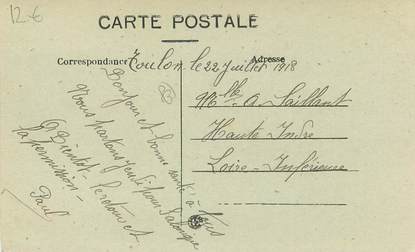 12€
CARTE POSTALE
Correspondance
Adresse
Toulon le 22 Juillet 1918
Bonjour et bonne santé à tous
Nous partons jeudi pour Salonique
A Bientôt le retour et
la permission -
Paul
Mlle A. Saillant
Haute Indre
Loire-Inférieure